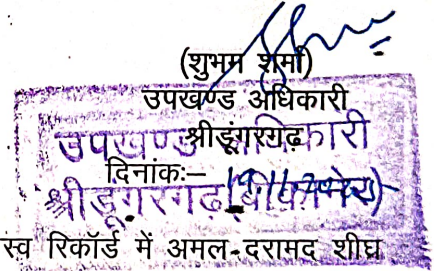 (शुभम शर्मा)
उपखण्ड अधिकारी
श्रीडूंगरगढ़
उपखण्ड अधिकारी
दिनांकः–
श्रीडूंगरगढ़ (बीकानेर)
स्व रिकॉर्ड में अमल-दरामद शीघ्र